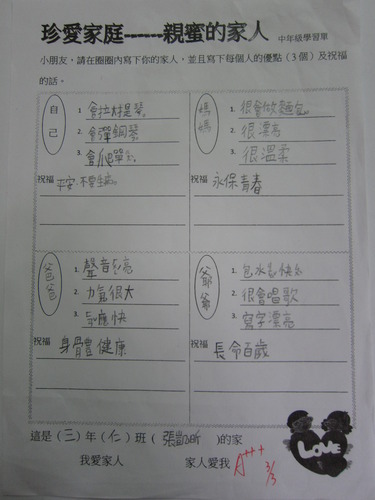 珍愛家庭------親蜜的家人 中年級學習單
小朋友，請在圈圈內寫下你的家人，並且寫下每個人的優點（3個）及祝福
的話。
自己
1. 會拉大提琴。
2. 會彈鋼琴。
3. 會爬單
祝福 平安
媽媽
1. 很會做麵包。
2. 很漂亮
3. 很溫柔
祝福 永保青春
爸爸
1. 聲音
2. 力氣很大
3. 應快
祝福 身體健康
爺爺
1. 包水
2. 很會唱歌
3. 寫字漂亮
祝福 長命百歲
LOVE
這是（三）年（仁）班（張凱昕）的家
我愛家人 家人愛我
A+++ 3/3